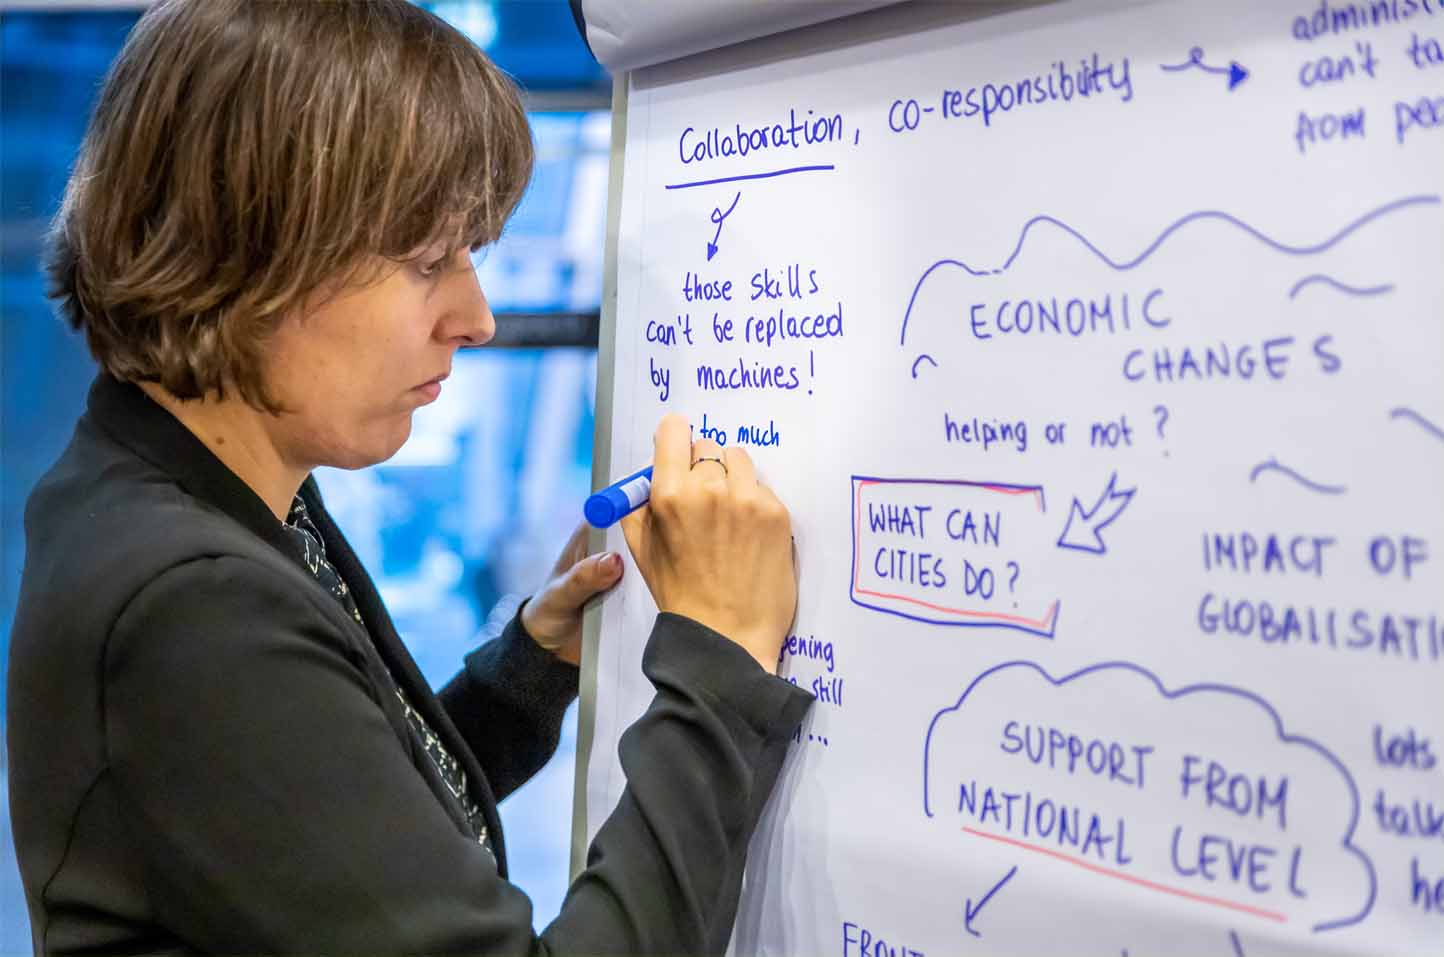 Collaboration, co-responsibility
can't
from
those skills
can't be replaced
by machines!
too much
still
...
ECONOMIC
CHANGES
helping or not?
WHAT CAN
CITIES DO?
IMPACT OF
SUPPORT FROM
NATIONAL LEVEL
lots